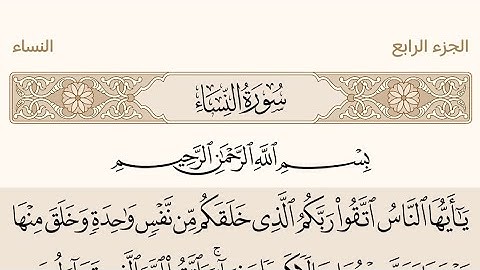 الجزء الرابع
النساء
سُورَةُ النِّسَاءِ
بِسْمِ اللَّهِ الرَّحْمَٰنِ الرَّحِيمِ
يَٰٓأَيُّهَا ٱلنَّاسُ ٱتَّقُوا۟ رَبَّكُمُ ٱلَّذِى خَلَقَكُم مِّن نَّفْسٍ وَٰحِدَةٍ وَخَلَقَ مِنْهَا